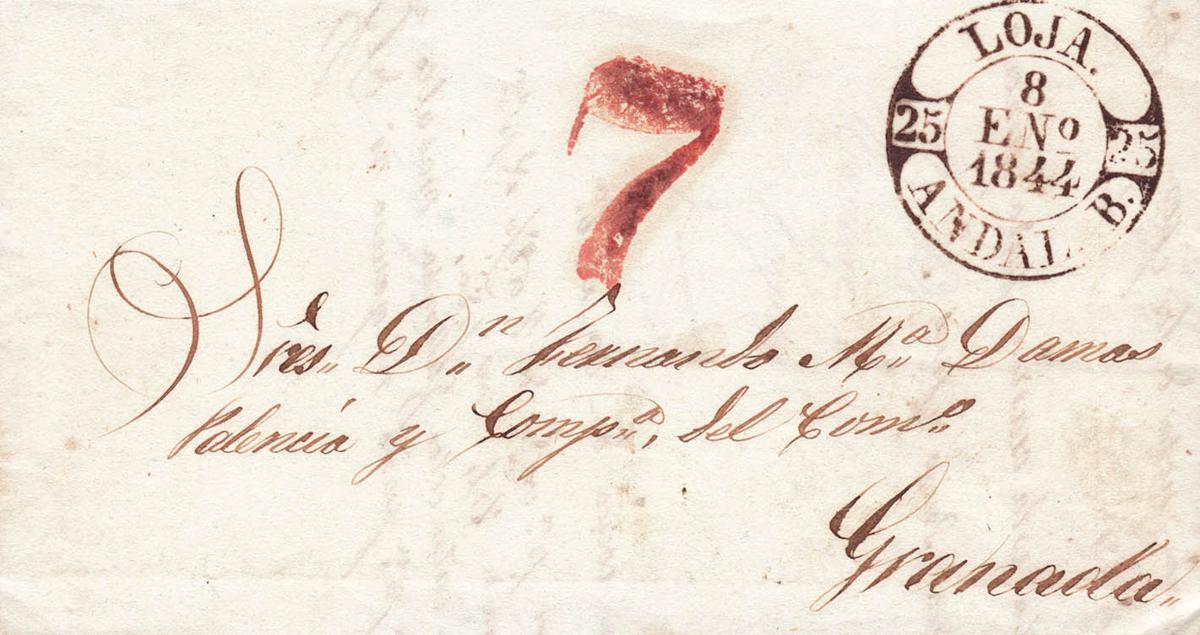 7
LOJA.
25
8
ENº
1844
25
ANDAL. B.
Sres. Dn. Fernando Mª. Damas
Valencia y Compª. del Comº
Granada.